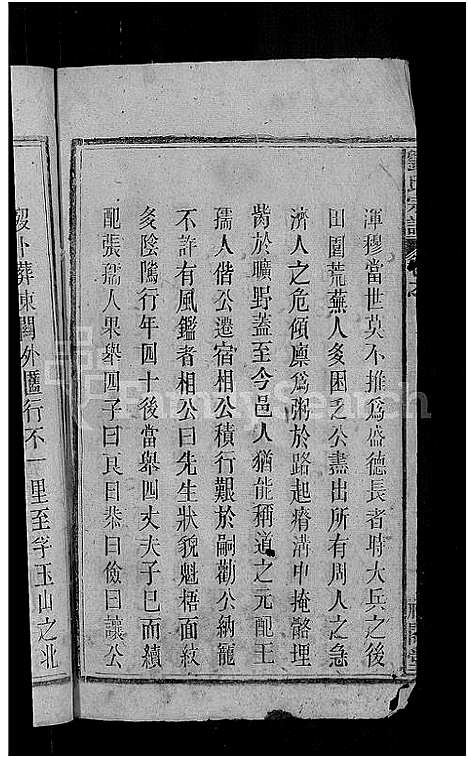 渾穆當世莫不推為盛德長者時大兵之後
田園荒蕪人多困乏公盡出所有周人之急
濟人之危傾廩為粥於路起瘠溝中掩骼埋
胔於曠野蓋至今邑人猶能稱道之元配王
孺人偕公遷宿相公積行艱於嗣勸公納寵
不許有風鑑者相公曰先生狀貌魁梧面紋
多陰騭行年四十後當舉四丈夫子已而續
配張孺人果舉四子曰良曰恭曰儉曰讓公
歿卜葬東關外匶行不一里至孚玉山之北
FamilySearch